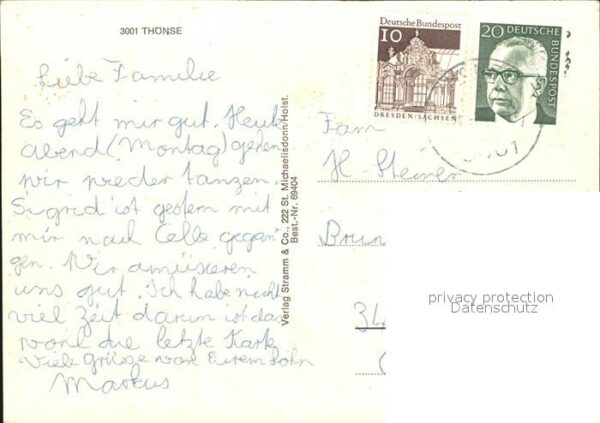 3001 THÖNSE
Deutsche Bundespost
10
DRESDEN/SACHSEN
20
DEUTSCHE
BUNDESPOST
Liebe Familie
Es geht mir gut. Heute
abend (Montag) gehen
wir wieder tanzen.
Sigrid ist gestern mit
mir nach Celle gegan-
gen. Wir amüsieren
uns gut. Ich habe nicht
viel Zeit darum ist das
wohl die letzte Karte
Viele grüsse von Eurem Sohn
Markus
Verlag Stramm & Co., 222 St. Michaelisdonn/Holst.
Best.-Nr. 69404
Fam
H. Steiner
Brun
34
privacy protection
Datenschutz